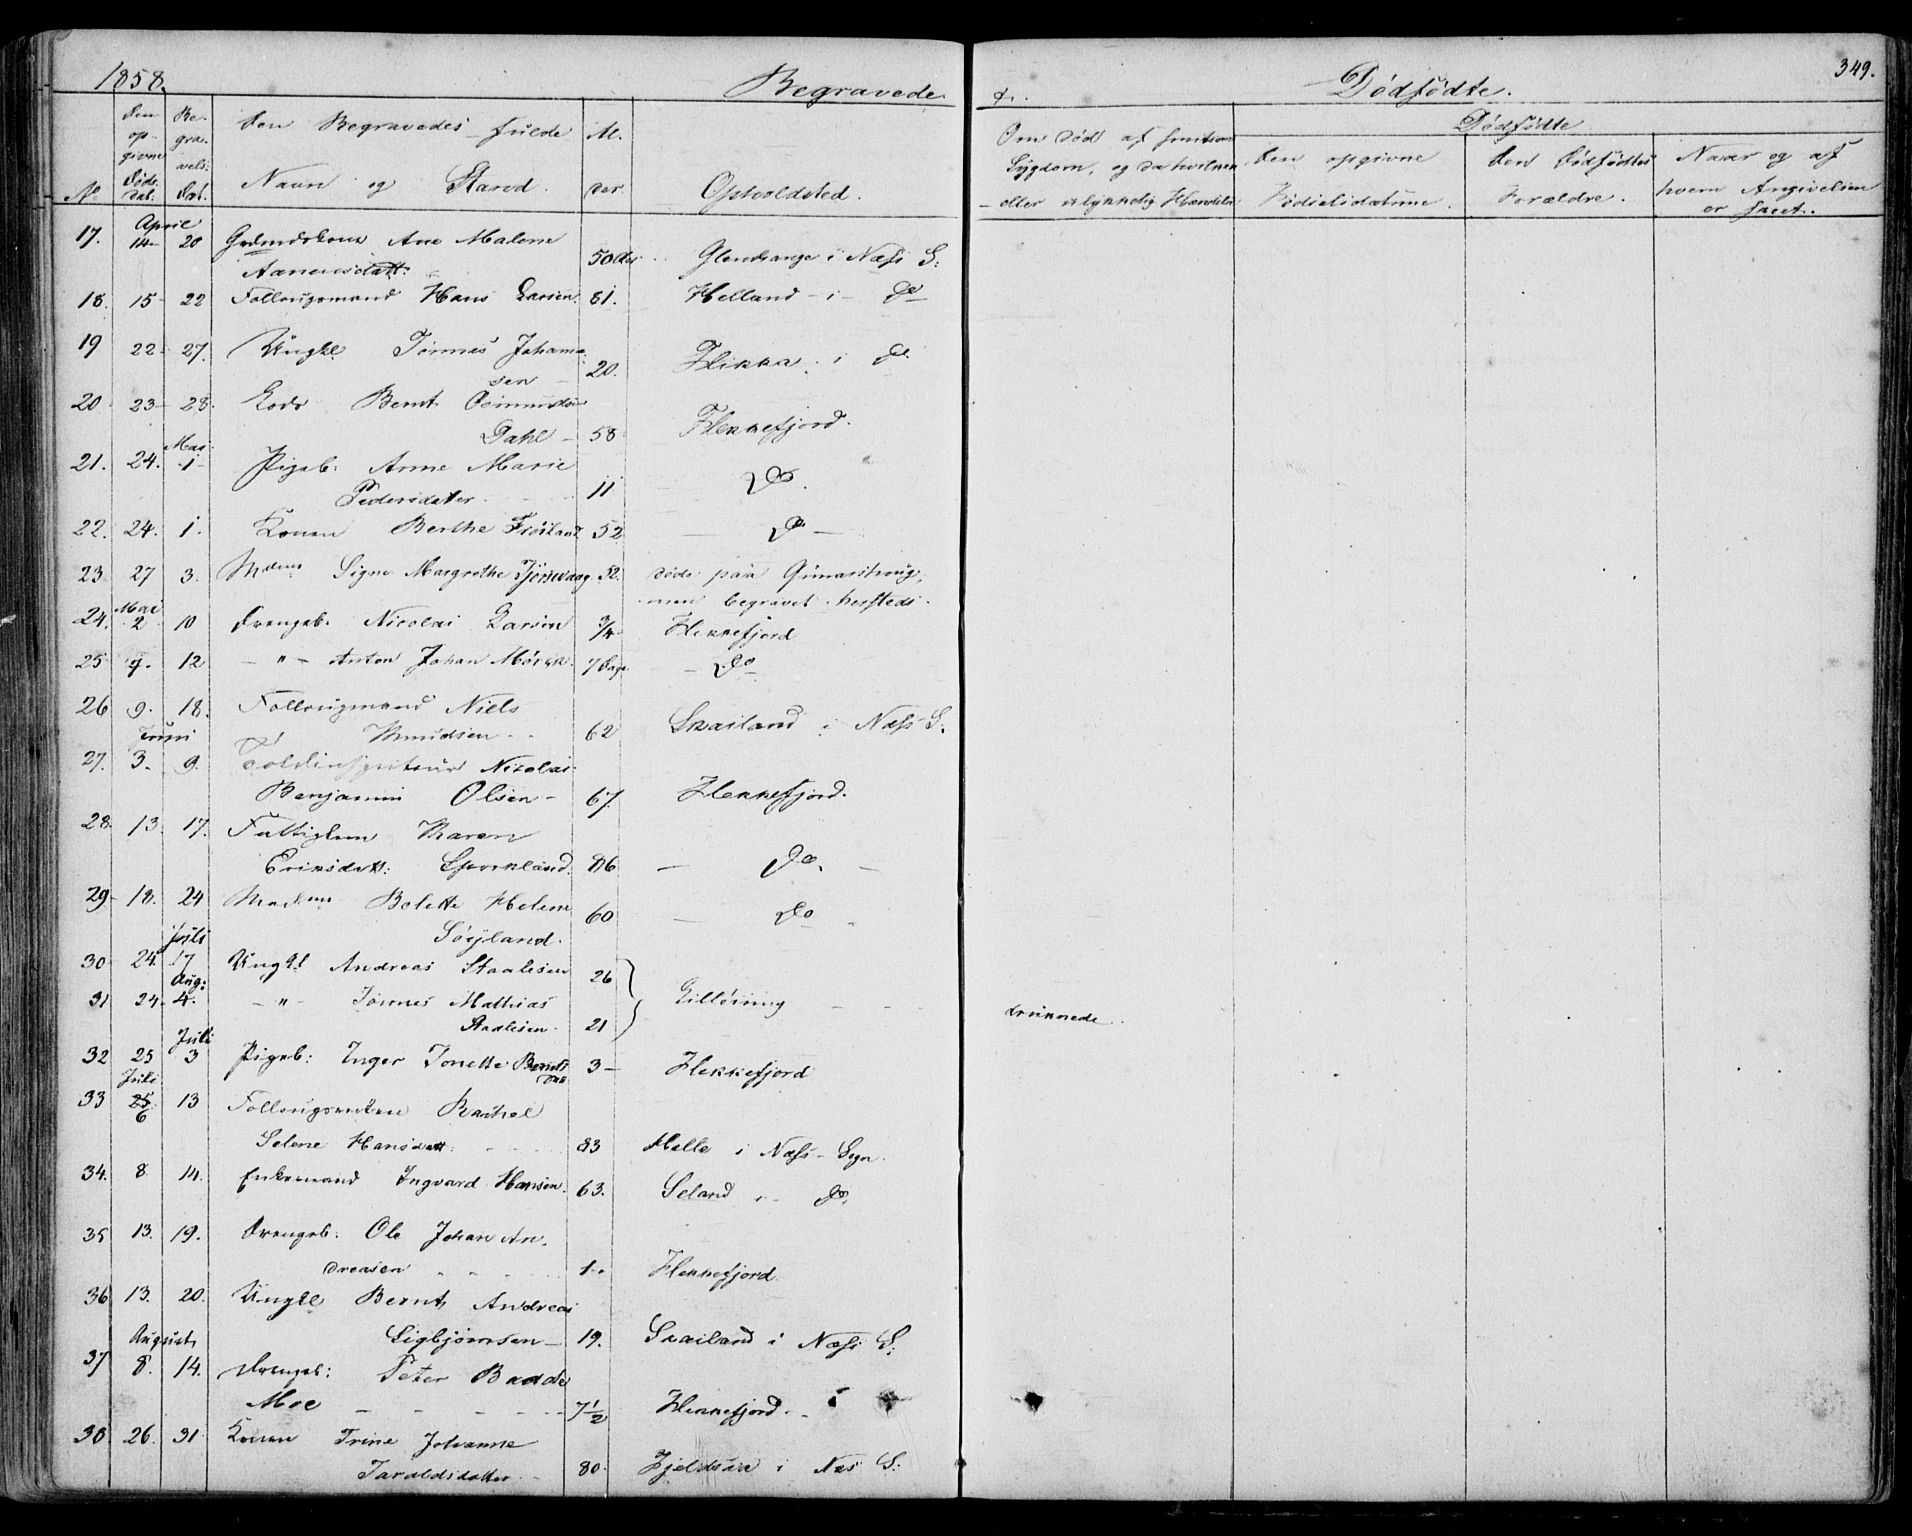 1858. Begravede & Dødfødte. 349.
No
Den opgivne Døds Dat.
Begravelses Dat.
Den Begravedes fulde Navn og Stand.
Alder
Opholdsted.
Om død af smitsom Sygdom, og da hvilken eller ulykkelig Hændelse
Dødfødte
Den opgivne Fødselsdatum.
Den Dødfødtes Forældre.
Naar og af hvem Angivelsen er skeet.
April
17. 14 20 Ane Malene
Aanensdatt: 50 Glendrange i Næss S:
18. 15 22 Follougsmand Hans Larsen. 81. Helland i Do
19 22 27. Ungkl Tønnes Johann-
sen 20. Flikka i Do
20 23 28. Lods Bernt Osmundsen
Dahl 58 Flekkefjord.
Mai
21. 24. 1 Pigeb: Anne Marie
Pedersdatter 11 Do.
22. 24. 1. Konen Berthe 52 Do
23 27 3. Mdme Signe Margrethe Tjørsvaag 52. døde paa
men begravet hersteds.
Mai
24. 2 10 Drengeb. Nicolai Larsen 3/4 Flekkefjord
25 7. 12 " Anton Johan Mørck. 7 Dage Do
26 9. 18. Follougsmand Niels
Knudsen 62 Skailand i Næss S.
Juni
27. 3. 9. Toldinspekteur Nicolai
Benjamin Olsen 67. Flekkefjord.
28. 13. 17. Fattiglem Maren
Eriksdatt: 86 Do.
29 18. 24 Madame Bolette Helene 60 Do
Søyland.
Juli
30 24. 17 Ungkl Andreas Staalesen 26
Aug:
31 24 4. " Tønnes Mathias Lilløsning druknede.
Staalesen 21
Juli
32 25 3 Pigeb: Inger Tonette Berntsdatt 3 Flekkefjord
Juli
33 25 6 13 Rachel
Selene Hansdatt: 83 Halle i Næss Sogn.
34. 8 14. Enkemand Ingvard Hansen. 63. Seland i Do.
35 13. 19. Drengeb: Ole Johan An-
dreasen 1 Flekkefjord
36 13. 20. Ungkl Bernt Andreas
Sigbjørnsen 19. Skailand i Næss S:
August
37 8. 14. Drengeb: Peter Badde
Moe 7 1/2 Flekkefjord.
38 26. 31 Konen Trine Johanne
Taraldsdatter 80 Fjeldsaa i Næs S: